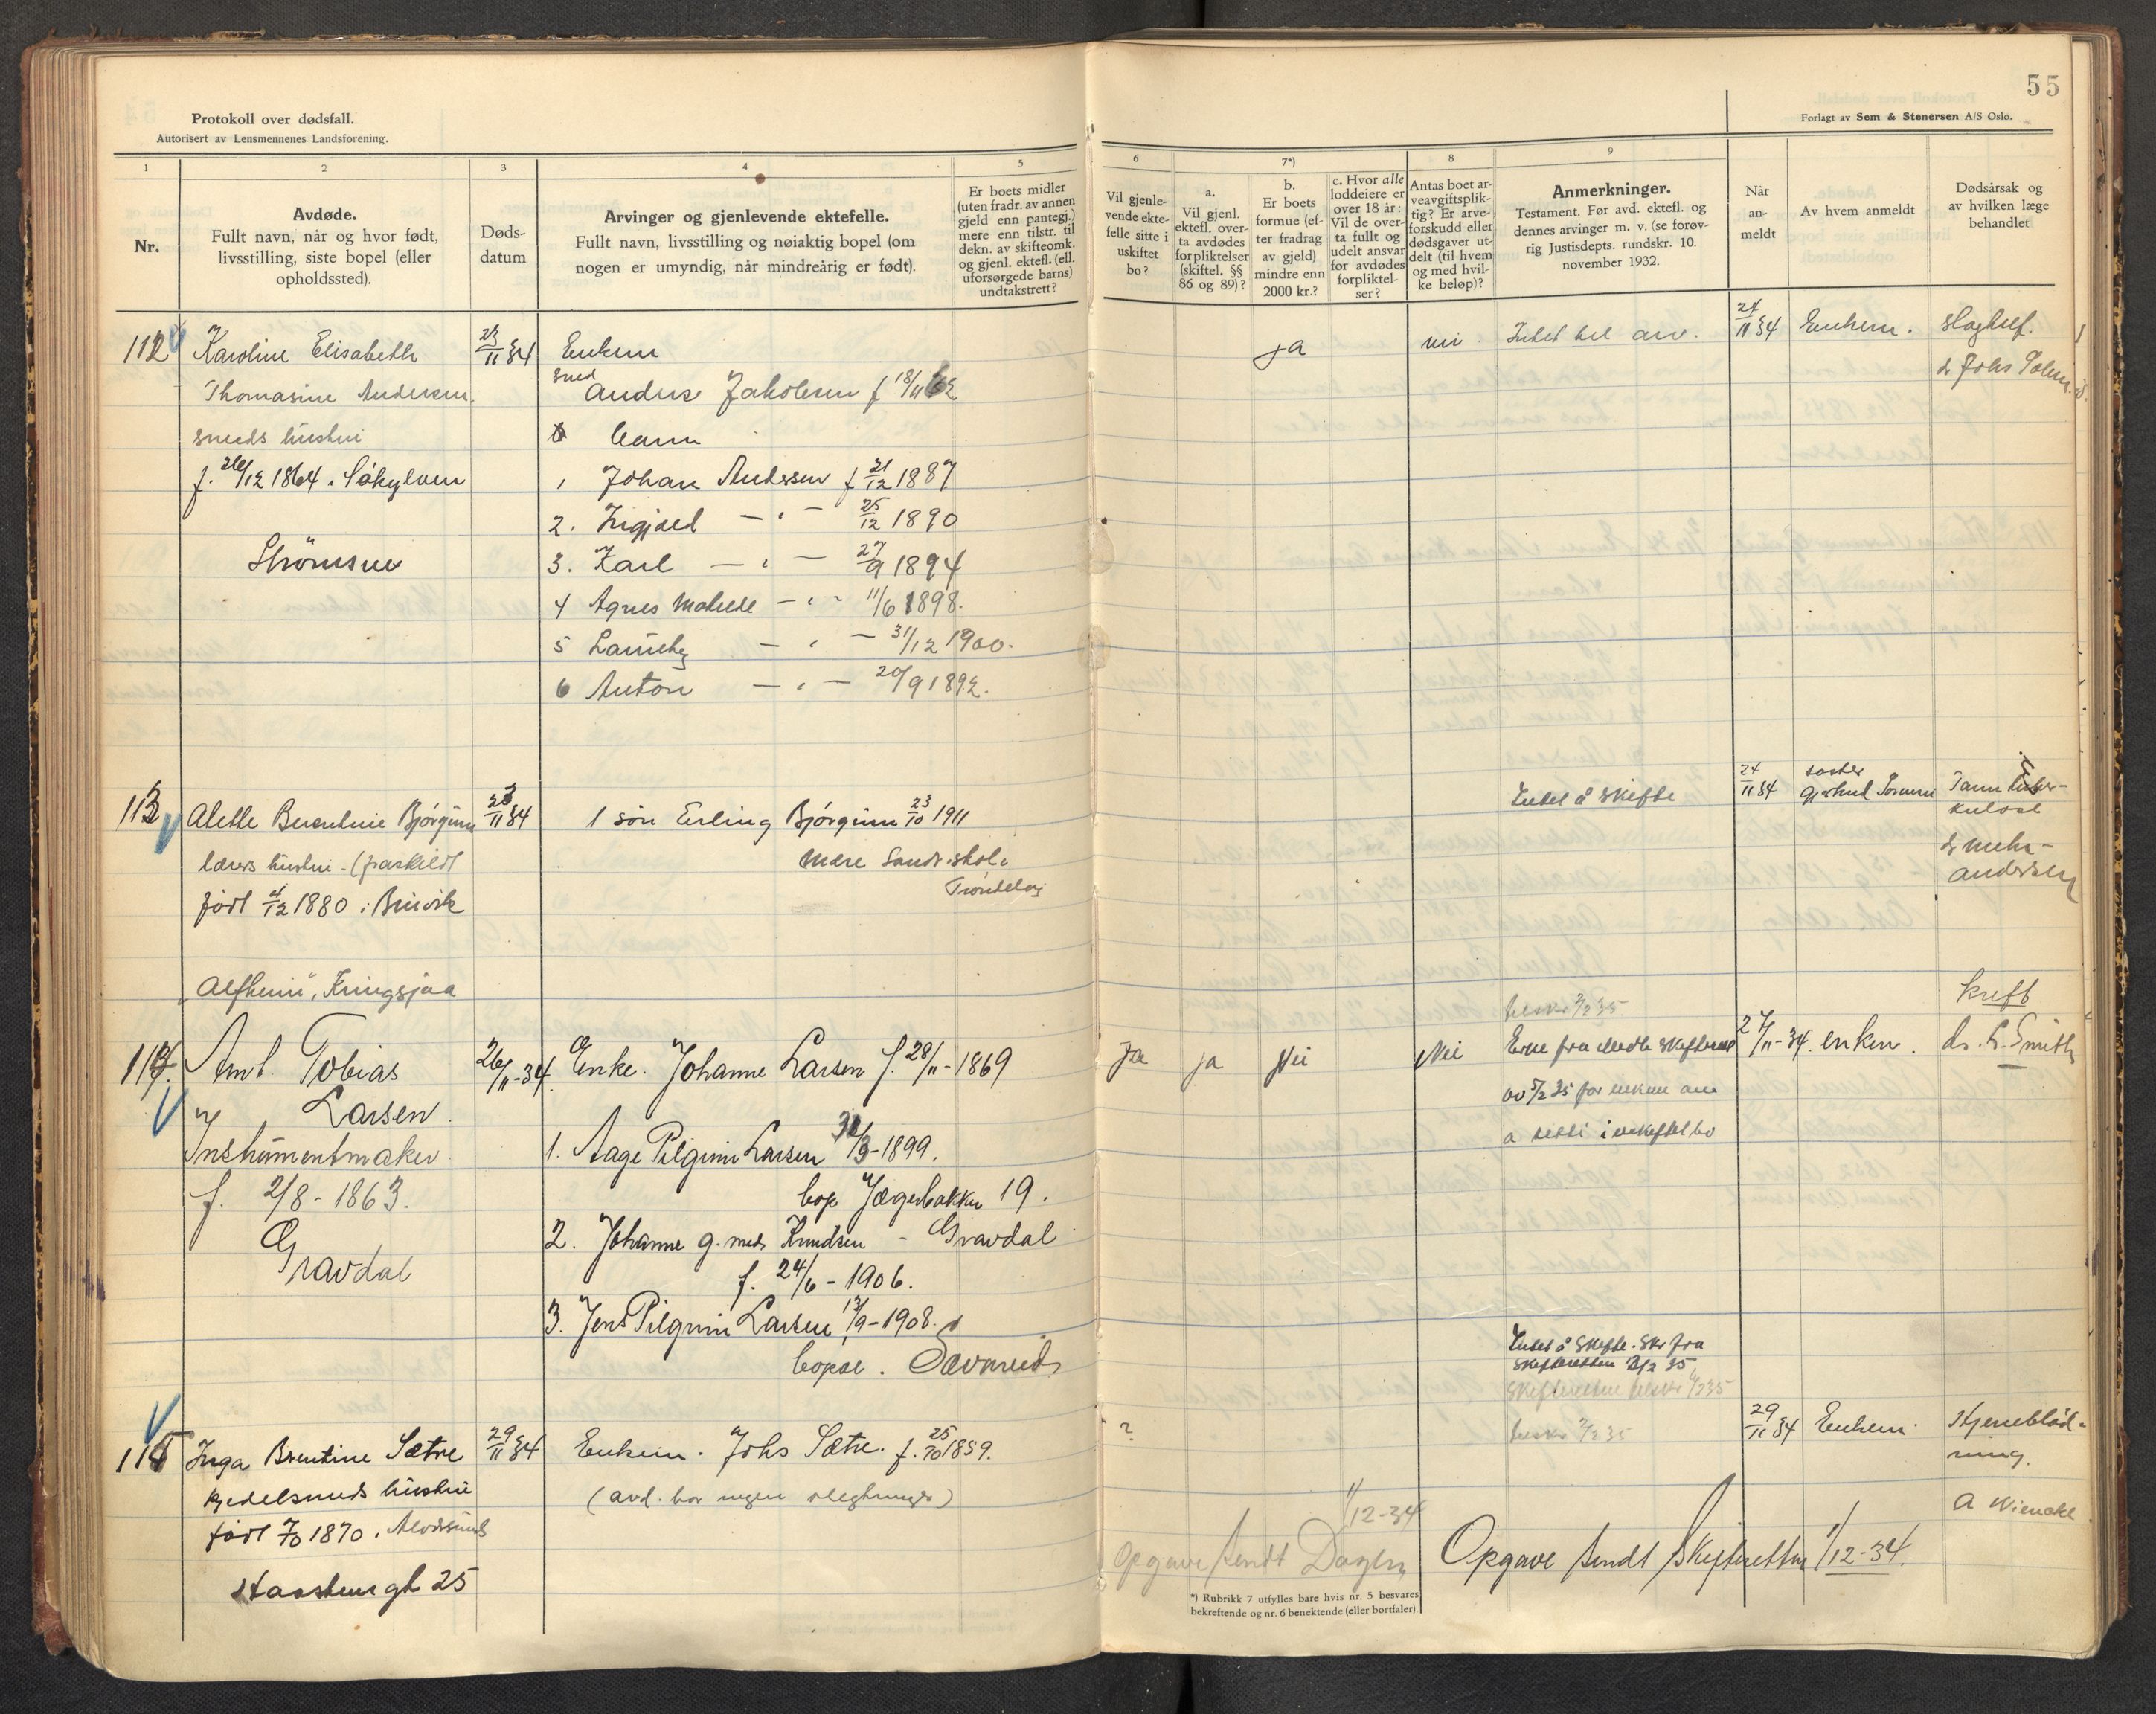 55
Protokoll over dødsfall.
Autorisert av Lensmennenes Landsforening.
Forlagt av Sem & Stenersen A/S Oslo.
1 2 3 4 5 6 7*) 8 9
Nr.
Avdøde.
Fullt navn, når og hvor født,
livsstilling, siste bopel (eller
opholdssted).
Døds-
datum
Arvinger og gjenlevende ektefelle.
Fullt navn, livsstilling og nøiaktig bopel (om
nogen er umyndig, når mindreårig er født).
Er boets midler
(uten fradr. av annen
gjeld enn pantegj.)
mere enn tilstr. til
dekn. av skifteomk.
og gjenl. ektefl. (ell.
uforsørgede barns)
undtakstrett?
Vil gjenle-
vende ekte-
felle sitte i
uskiftet
bo?
a.
Vil gjenl.
ektefl. over-
ta avdødes
forpliktelser
(skiftel. §§
86 og 89)?
b.
Er boets
formue (ef-
ter fradrag
av gjeld)
mindre enn
2000 kr.?
c. Hvor alle
loddeiere er
over 18 år:
Vil de over-
ta fullt og
udelt ansvar
for avdødes
forpliktel-
ser?
Antas boet ar-
veavgiftsplik-
tig? Er arve-
forskudd eller
dødsgaver ut-
delt (til hvem
og med hvil-
ke beløp)?
Anmerkninger.
Testament. Før avd. ektefl. og
dennes arvinger m. v. (se forøv-
rig Justisdepts. rundskr. 10.
november 1932.
Når
an-
meldt
Av hvem anmeldt
Dødsårsak og
av hvilken læge
behandlet
112 Karoline Elisabeth 23/11 34
Thomasine Andersen.
smeds hustru
f. 26/12 1864 i Søkylven
Strömsnes
Enkem
smed
Anders Jakobsen f 18/11 62
6 barn
1 Johan Andersen f 21/12 1887
2. Ingjald — " — 25/12 1890
3. Karl — " — 27/9 1894
4 Agnes Matilde — " — 11/6 1898.
5 — " — 31/12 1900.
6 Anton — " — 20/9 1892.
ja nei Intet bel arv. 24/11 34 Enkem. Slagtilf.
113 Alette Berentine 23/11 34
lærers hustru - (fraskilt
født 4/12 1880 i
Alfheim, Kringsjaa
1 sön Erling 23/10 1911
Mære Landb.skole
Trøndelag
Intet å skifte 24/11 34 søster
114. Amt Tobias 26/11-34.
Larsen.
Instrumentmaker.
f. 2/8 - 1863.
Gravdal
Enke. Johanne Larsen f. 28/11 - 1869
1. Aage Pilgrim Larsen /3-1899.
bop Jægerbakken 19.
2. Johanne g. med Knudsen - Gravdal
f. 24/6 - 1906.
3. Jens Pilgrim Larsen 13/9-1908.
bopæl.
ja ja Nei Nei
av 5/2 35 for enken om
å sitte i uskiftet bo
27/11-34. enken. Kreft
dr. Smith
115 Inga Berntine Sætre 29/11 34
kjedelsmeds hustru
født 1870 i
25
Enkem. Johs Sætre. f. 25/10 1859.
(avd. har ingen slegtninger)
?
Intet å skifte. Skr fra
skifteretten 35
29/11 34 Enkem. Hjerneblød-
ning.
1/12-34
Opgave sendt Dagen
Opgave sendt Skifteretten 1/12-34.
*) Rubrikk 7 utfylles bare hvis nr. 5 besvares
bekreftende og nr. 6 benektende (eller bortfaler)